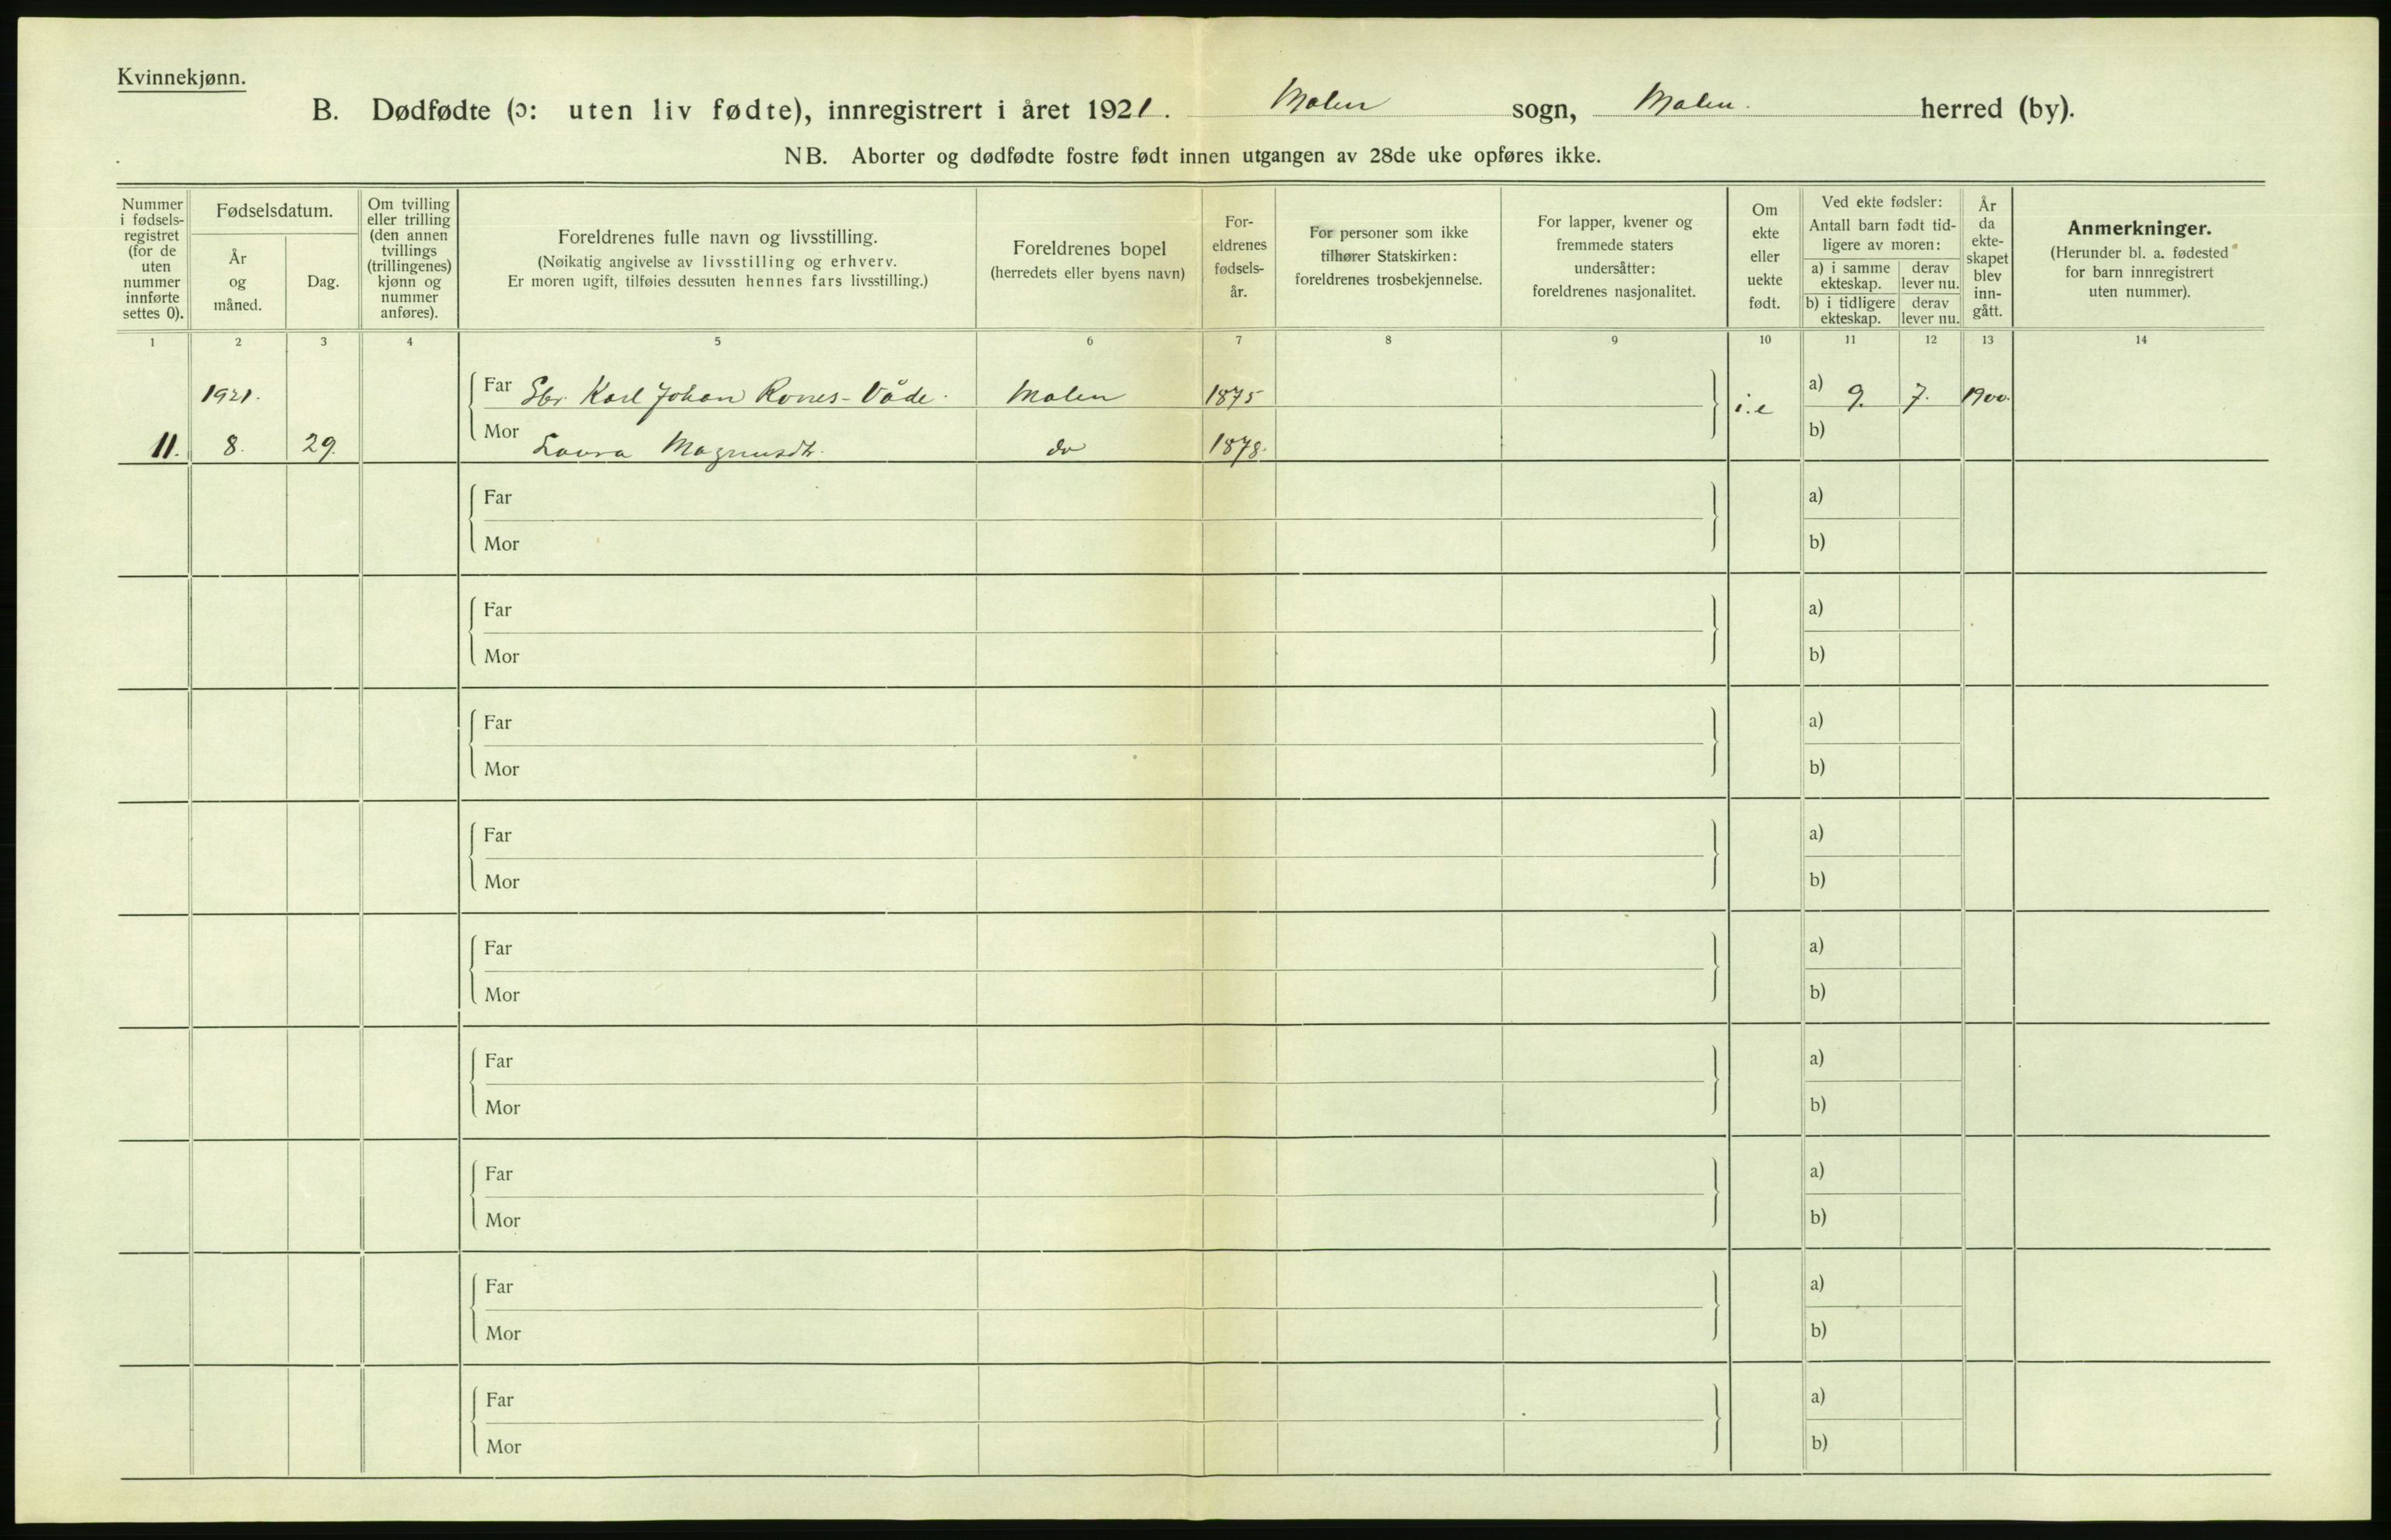 Kvinnekjønn.
B. Dødfødte (ɔ: uten liv fødte), innregistrert i året 1921. Malm sogn, Malm. herred (by).
NB. Aborter og dødfødte fostre født innen utgangen av 28de uke opføres ikke.
Nummer
i fødsels-
registret
(for de
uten
nummer
innførte
settes 0).
Fødselsdatum.
År
og
måned.
Dag.
Om tvilling
eller trilling
(den annen
tvillings
(trillingenes)
kjønn og
nummer
anføres).
Foreldrenes fulle navn og livsstilling.
(Nøikatig angivelse av livsstilling og erhverv.
Er moren ugift, tilføies dessuten hennes fars livsstilling.)
Foreldrenes bopel
(herredets eller byens navn)
For-
eldrenes
fødsels-
år.
For personer som ikke
tilhører Statskirken:
foreldrenes trosbekjennelse.
For lapper, kvener og
fremmede staters
undersåtter:
foreldrenes nasjonalitet.
Om
ekte
eller
uekte
født.
Ved ekte fødsler:
Antall barn født tid-
ligere av moren:
a) i samme
ekteskap.
derav
lever nu.
b) i tidligere
ekteskap.
derav
lever nu.
År
da
ekte-
skapet
blev
inn-
gått.
Anmerkninger.
(Herunder bl. a. fødested
for barn innregistrert
uten nummer).
1 2 3 4 5 6 7 8 9 10 11 12 13 14
1921. Far Gbr. Karl Johan Rones-Våde. Malm 1875 i.e a) 9. 7. 1900.
11. 8. 29. Mor Laura Magnusdtr. do 1878. b)
Far a)
Mor b)
Far a)
Mor b)
Far a)
Mor b)
Far a)
Mor b)
Far a)
Mor b)
Far a)
Mor b)
Far a)
Mor b)
Far a)
Mor b)
Far a)
Mor b)